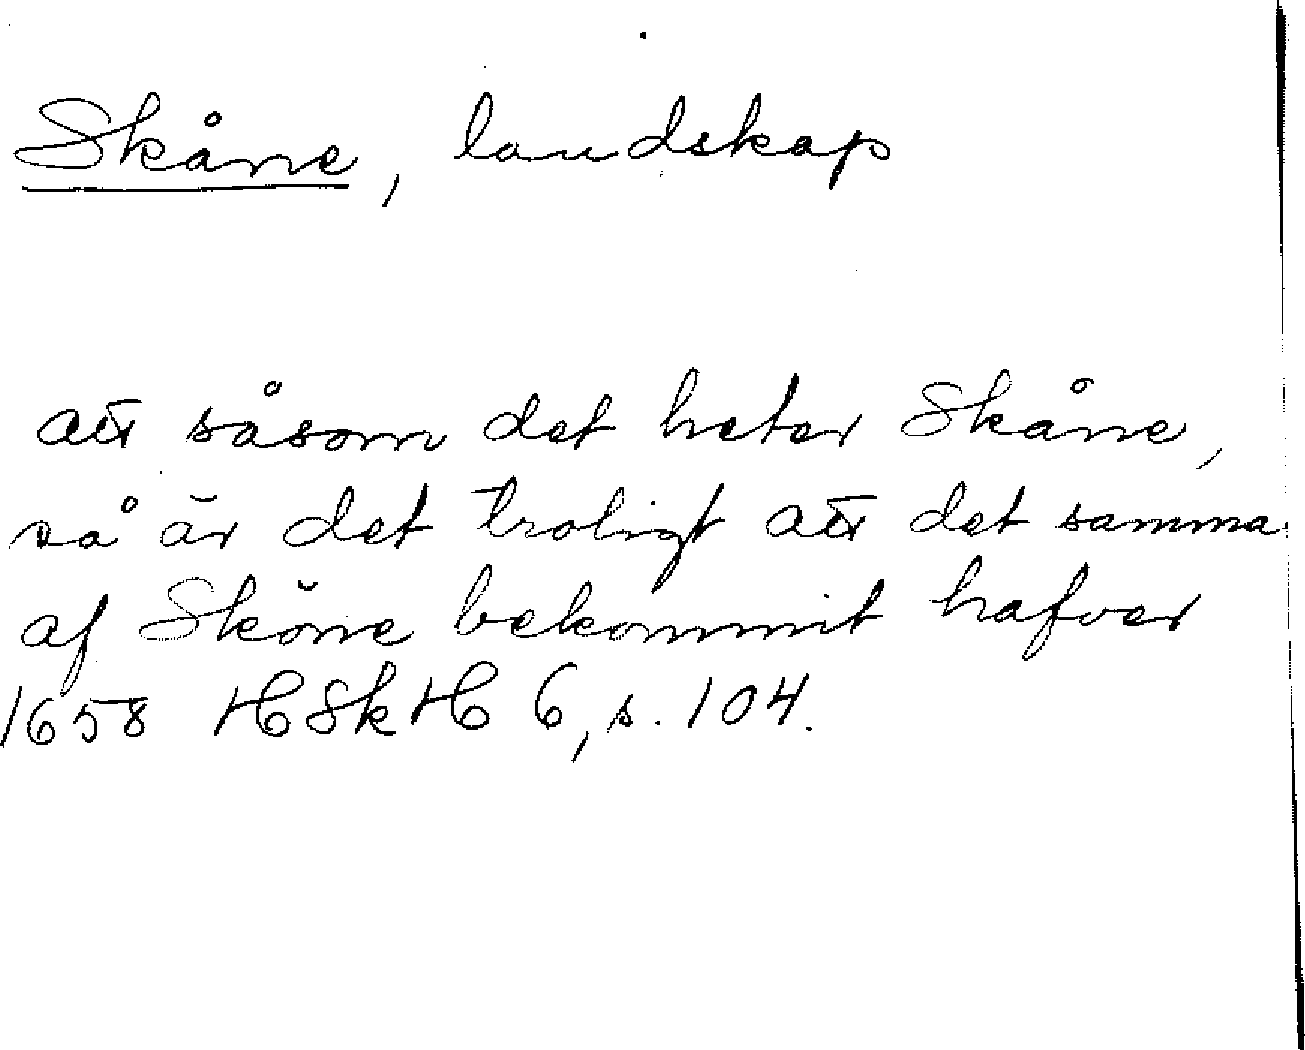 Skåne, landskap
att såsom det heter Skåne,
så är det troligt att det samma
af Sköne bekommit hafver
1658 HSkH 6, s. 104.